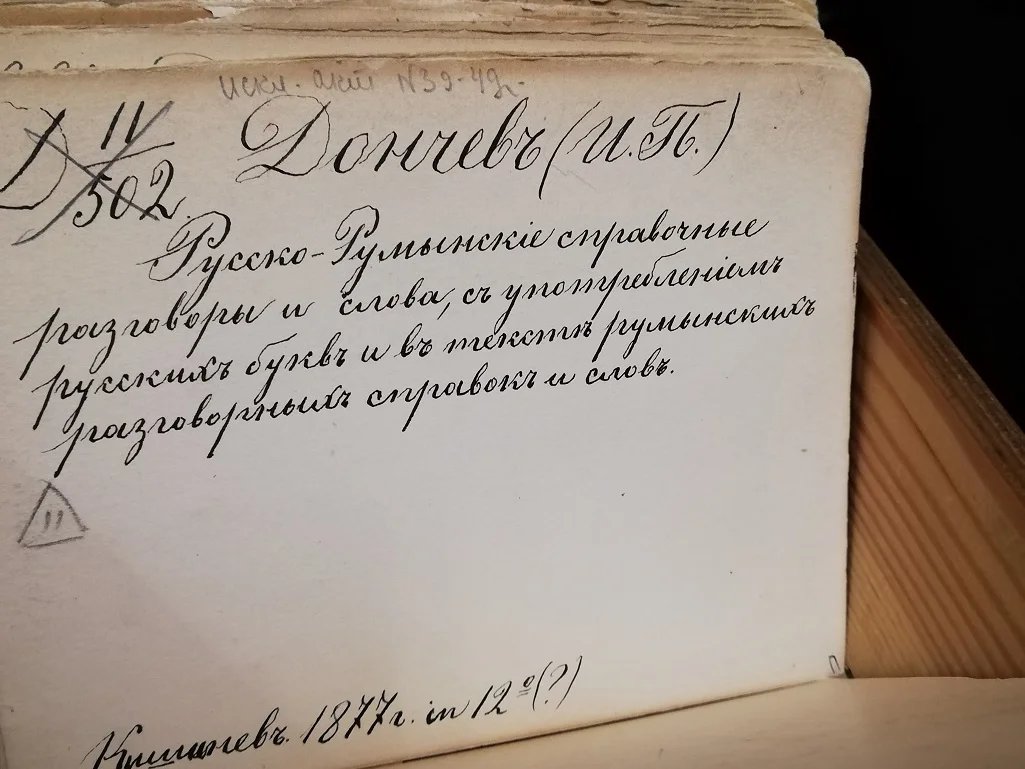 искл. Акт N39-49г.
II/502
Дончевъ (И.П.)
Русско-Румынскіе справочные
разговоры и слова, съ употребленіемъ
русскихъ буквъ и въ текстѣ румынскихъ
разговорныхъ справокъ и словъ.
II
Кишиневъ. 1877 г. in 12º (?)